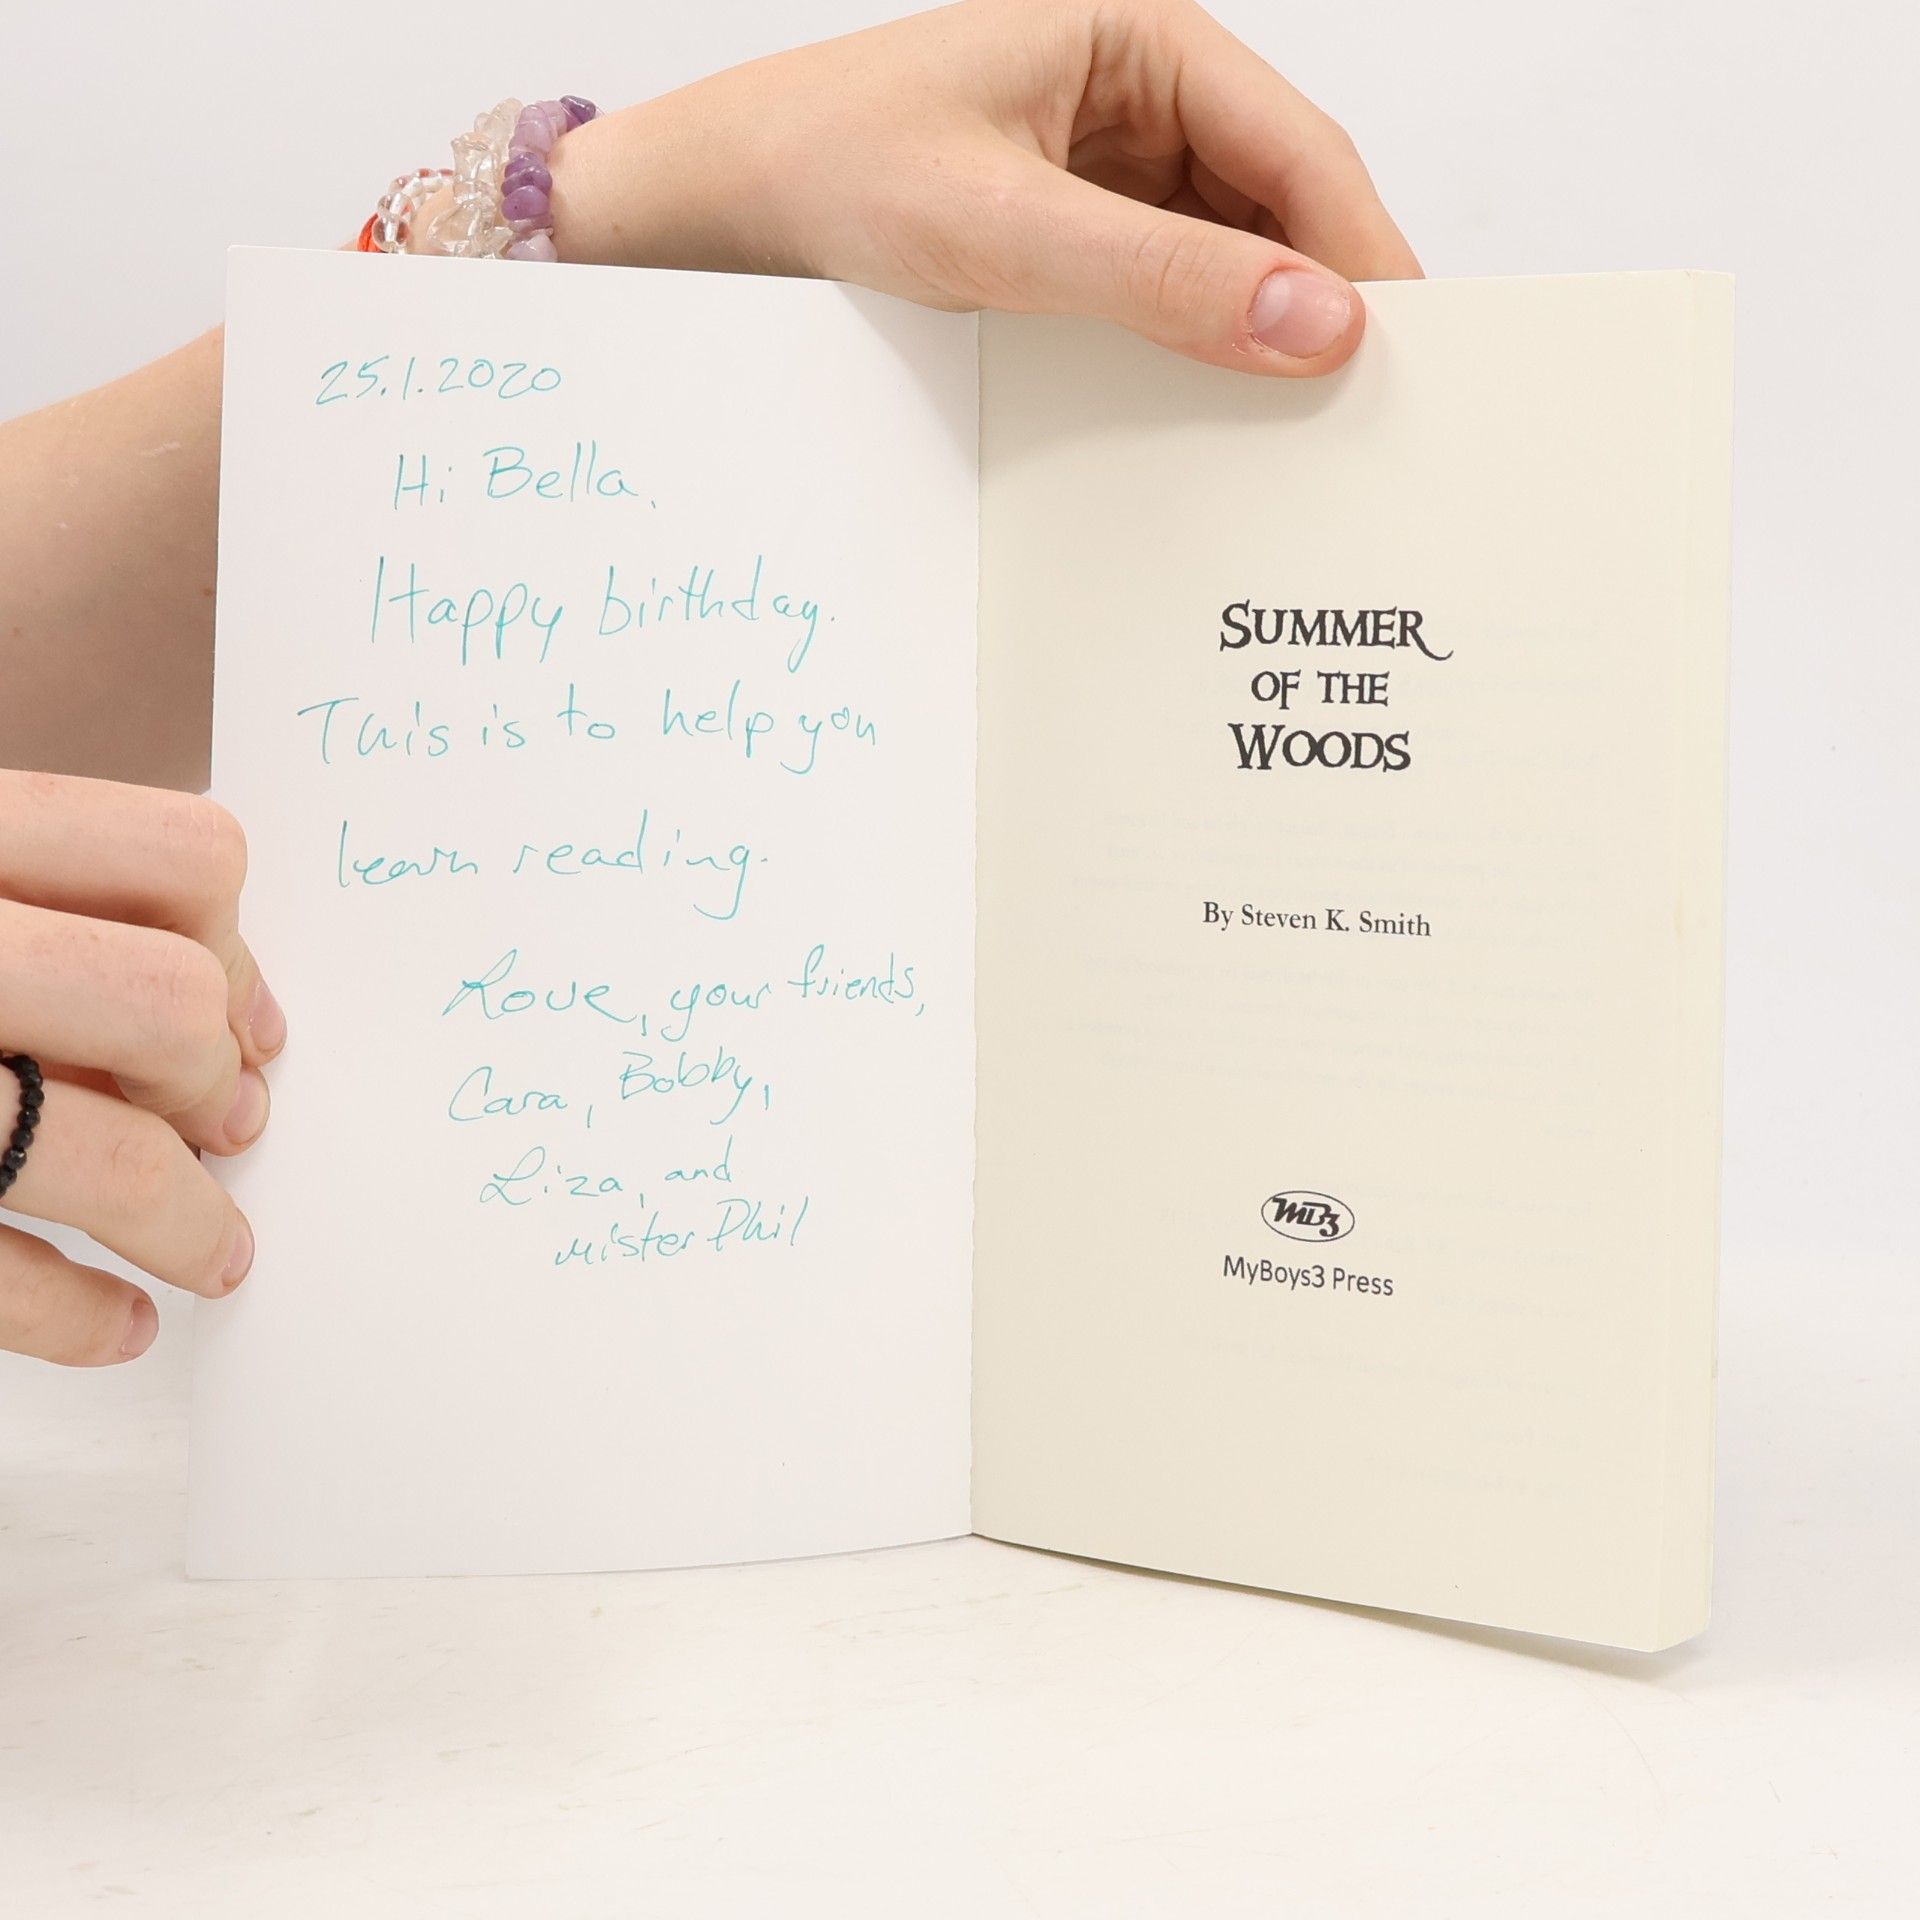 25.1.2020
Hi Bella,
Happy birthday.
This is to help you
learn reading.
Love, your friends,
Cara, Bobby,
Liza, and
mister Phil
SUMMER
OF THE
WOODS
By Steven K. Smith
MB3
MyBoys3 Press